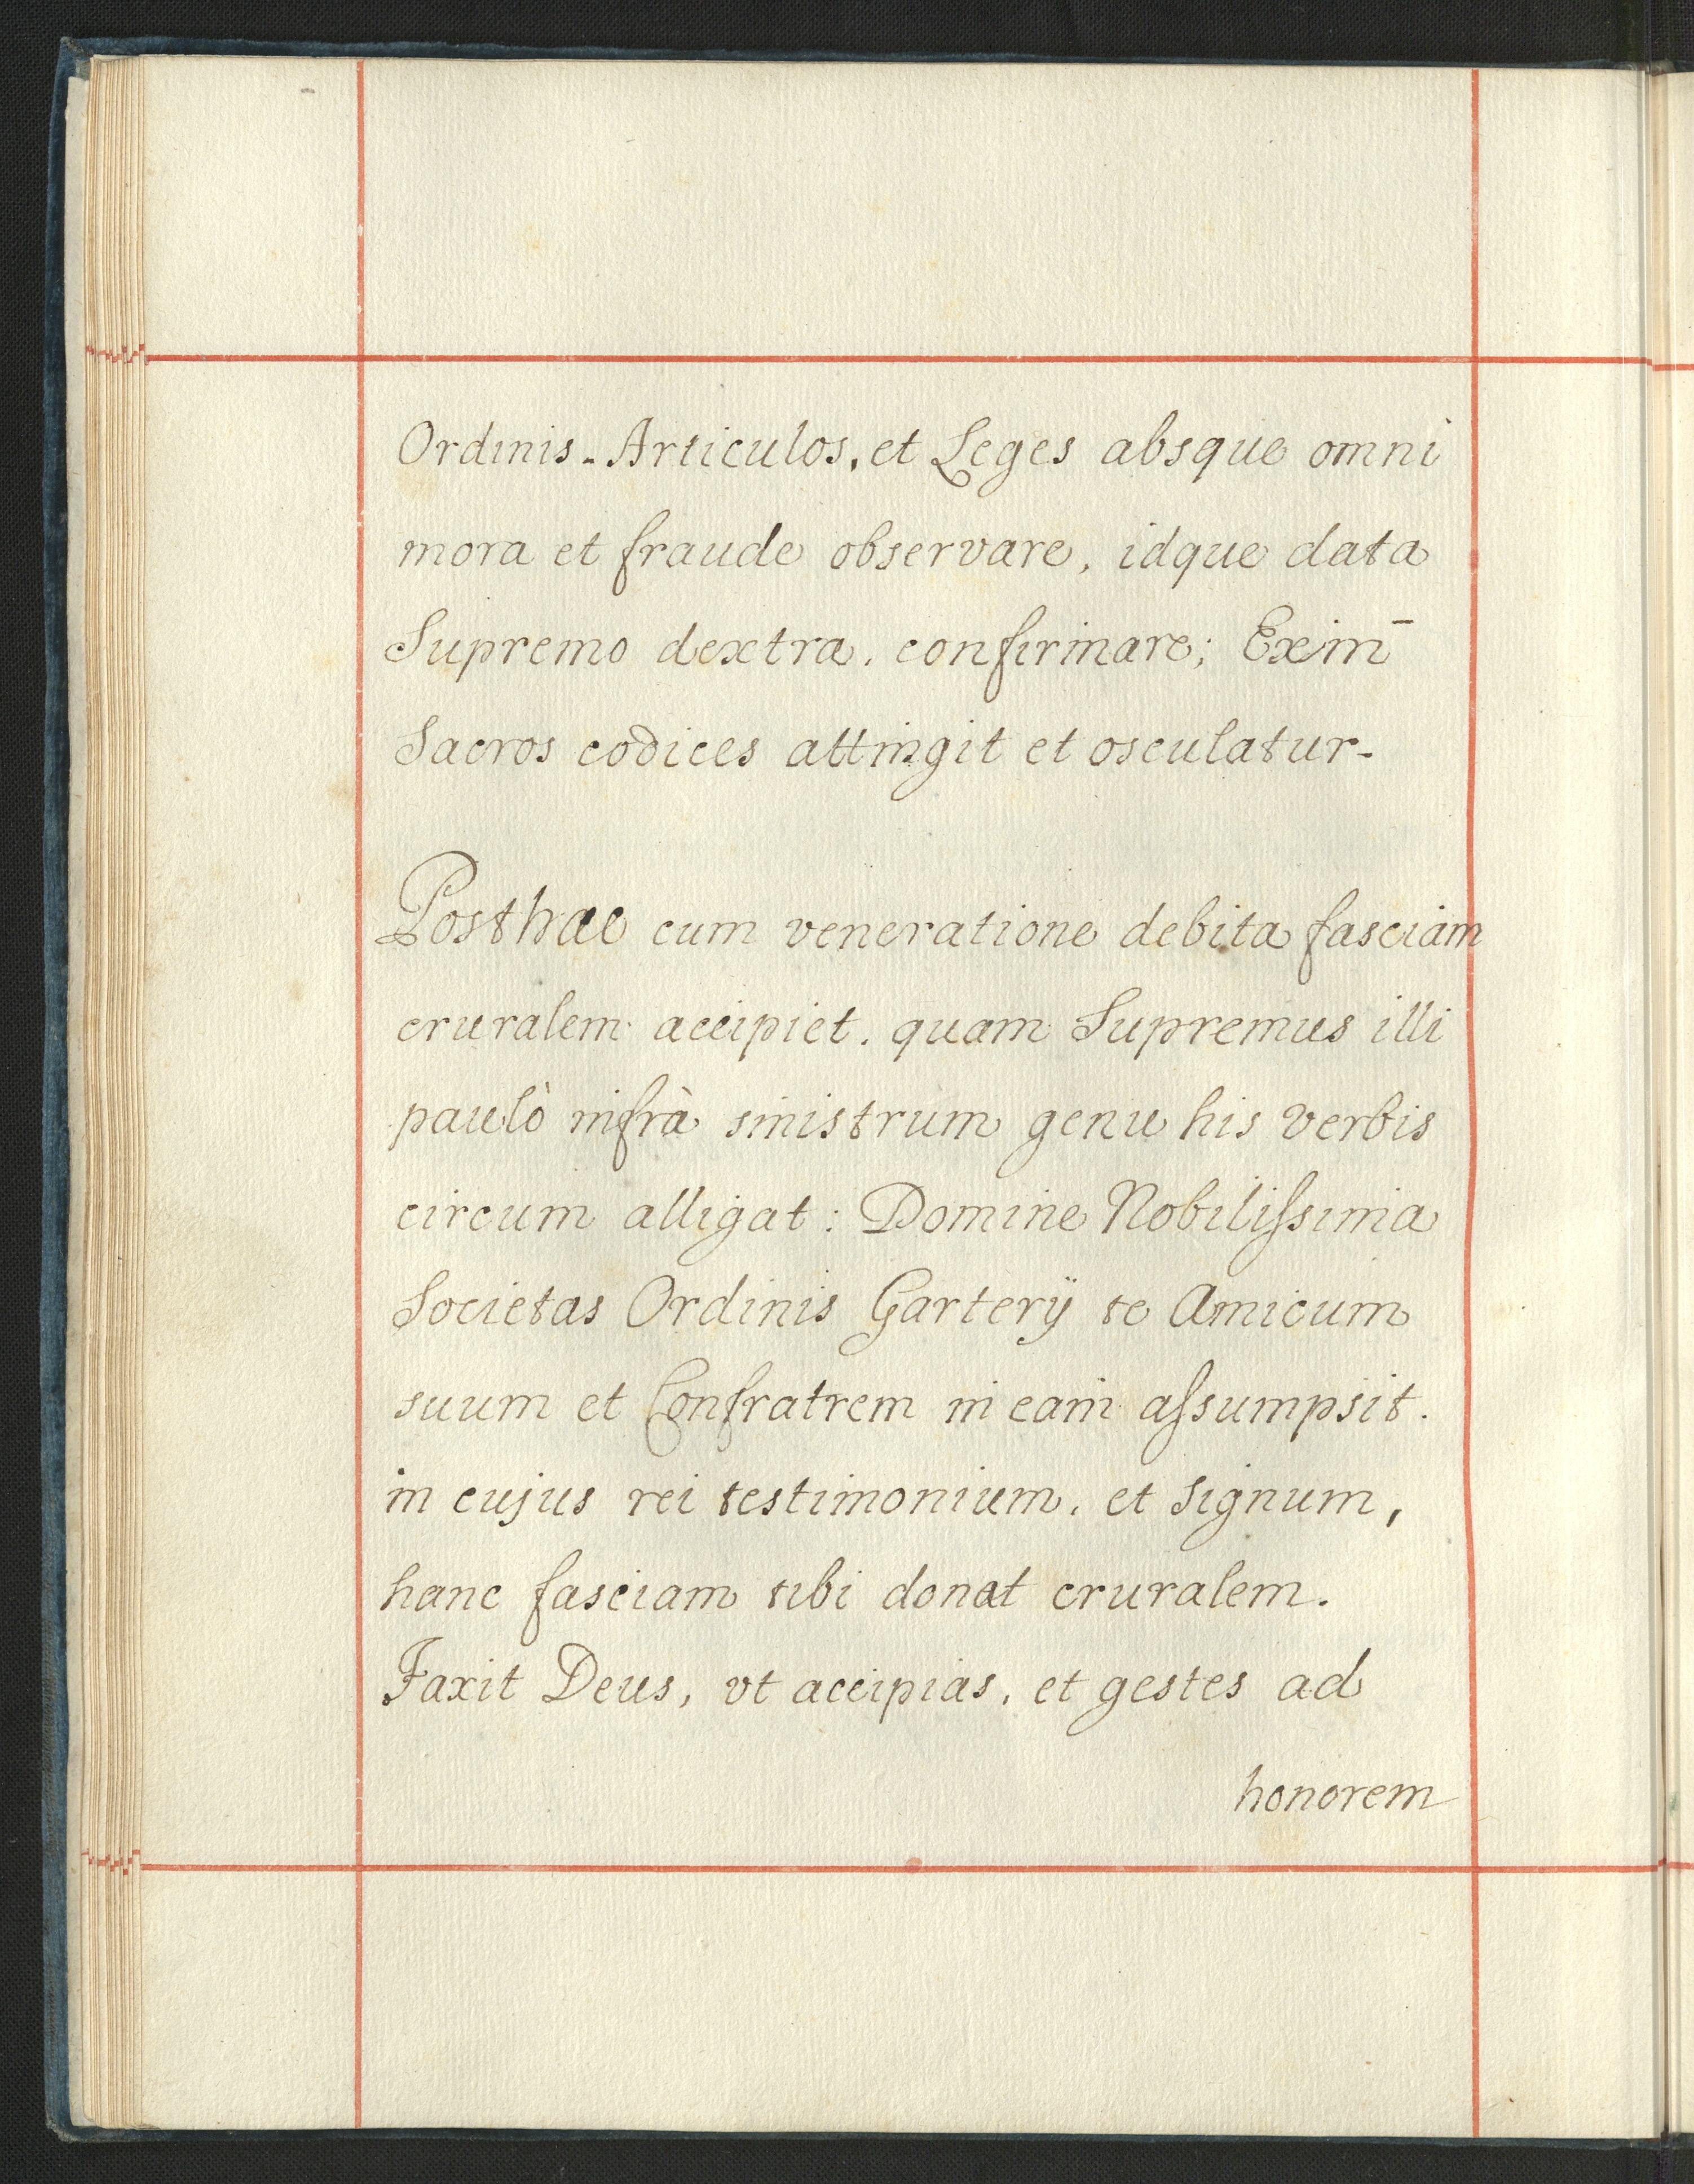 Ordinis. Articulos, et Leges absque omni
mora et fraude observare, idque data
Supremo dextra, confirmare; Exim̄
Sacros codices attingit et osculatur.
Posthac cum veneratione debita fasciam
cruralem accipiet. quam Supremus illi
paulò infrà sinistrum genu his verbis
circum alligat: Domine Nobilißima
Societas Ordinis Garterÿ te Amicum
suum et Confratrem in eam aßumpsit.
in cujus rei testimonium, et signum,
hanc fasciam tibi donat cruralem.
Faxit Deus, vt accipias, et gestes ad
honorem